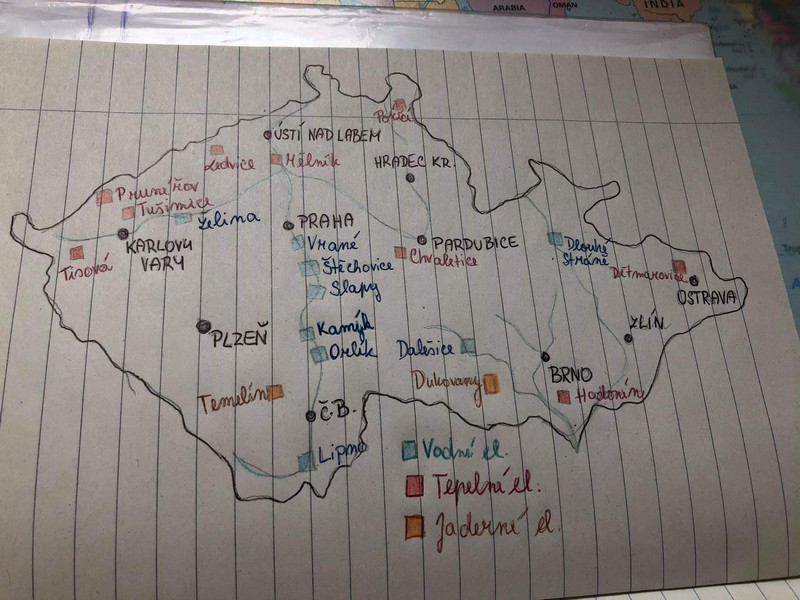 ARABIA
OMAN
INDIA
Poříčí
ÚSTÍ NAD LABEM
Ledvice
Mělník
HRADEC KR.
Prunéřov
Tušimice
Želina
PRAHA
KARLOVY
VARY
Tisová
Vrané
Štěchovice
Slapy
PARDUBICE
Chvaletice
Dlouhé
Stráně
Dětmarovice
OSTRAVA
PLZEŇ
Kamýk
Orlík
Dalešice
ZLÍN
BRNO
Temelín
Dukovany
Hodonín
Č.B.
Lipno
Vodní el.
Tepelné el.
Jaderné el.